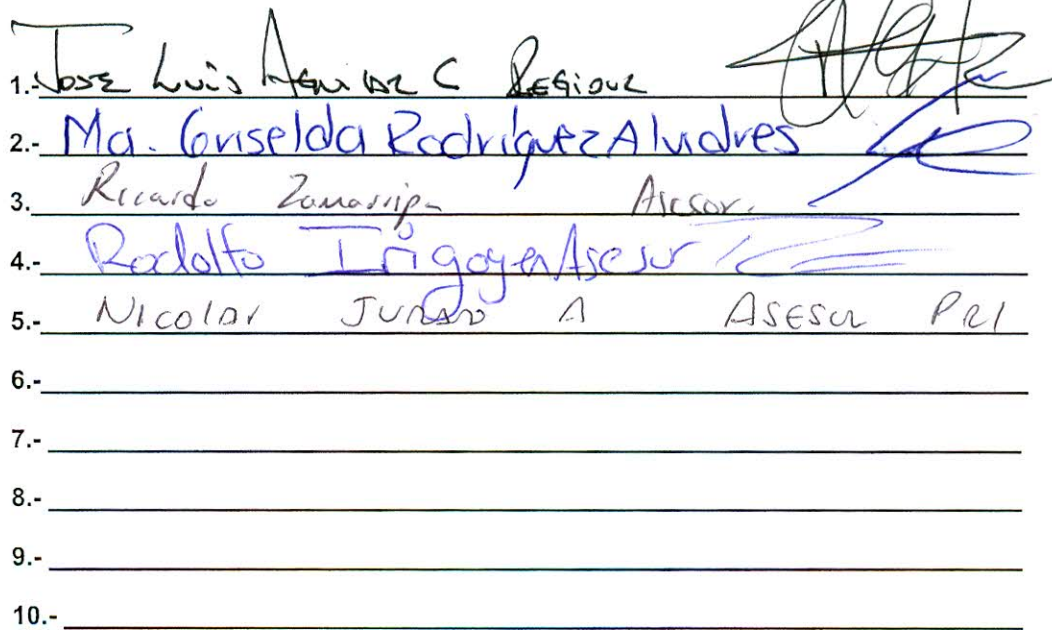 1.- Jose Luis Aguilar C Regidor
2.- Ma. Griselda Rodríguez Aludres
3. Ricardo Zamarripa Asesor.
4.- Rodolfo Irigoyen Asesor
5.- Nicolas JURADO A ASESOR PRI
6.-
7.-
8.-
9.-
10.-